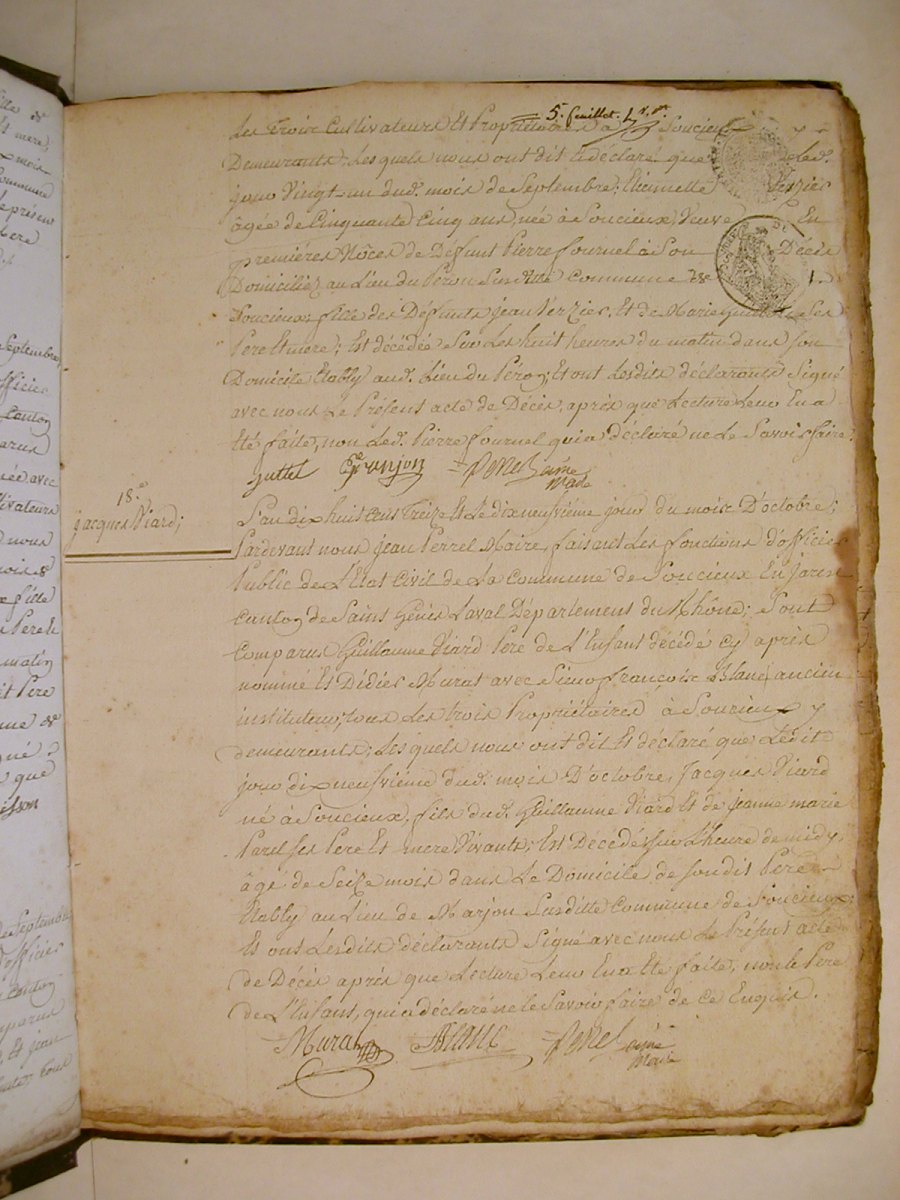 5e. feuillet.
Les Trois Cultivateurs Et Propriétaires à Soucieux y
Demeurants, Lesquels nous ont dit et déclaré que ledt.
jour Vingt-un dud. mois de Septembre, Etiennette Verzier
âgée de Cinquante Cinq ans, née à Soucieux, Veuve En
premières Nôces de Defunt Pierre fournel à Son Décès
Domiciliéz au Lieu du Peron Susditte Commune de
Soucieux, fille des Défunts jean Verzier, Et de Marie Ses
Pere Et mere; Est décédée Sur Les huit heures du matin dans Son
Domicile Etably aud. Lieu du Péron; Et ont Lesdits déclarants Signé
avec nous Le Présent acte de Décès, après que Lecture Leur En a
Eté faite, non Led. Pierre fournel qui a déclaré ne Le Savoir faire.
Guttet Granjon Perrel aîné
Maire
18e.
jacques Viard;
L'an dix huit Cent Treize Et Le dix neufvième jour du mois D'octobre;
Pardevant nous jean Perrel Maire, faisant Les fonctions d'officier
Public de L'Etat Civil de La Commune de Soucieux En jarest
Canton de Saint Genis Laval Département du Rhône; Sont
Comparus Guillaume Viard Pere de L'Enfant décédé cy après
nommé Et Didier Murat avec Sieur françois Blanc ancien
instituteur, tous Les trois Propriétaires à Soucieux y
demeurants, Lesquels nous ont dit Et déclaré que Ledit
jour dix neufvième dud. mois D'octobre, Jacques Viard
né à Soucieux, fils dud. Guillaume Viard Et de jeanne marie
ses Pere Et mere Vivants; Est Décédé Sur L'heure de midy,
âgé de Seize mois dans Le Domicile de Sondit Pere
Etably au Lieu de Marjon Susditte Commune de Soucieux;
Et ont Lesdits déclarants Signé avec nous Le Présent acte
de Décès après que Lecture Leur En a Eté faite, non le Pere
de L'Enfant, qui a déclaré ne le Savoir faire de ce Enquis.
Murat Blanc Perrel aîné
Maire